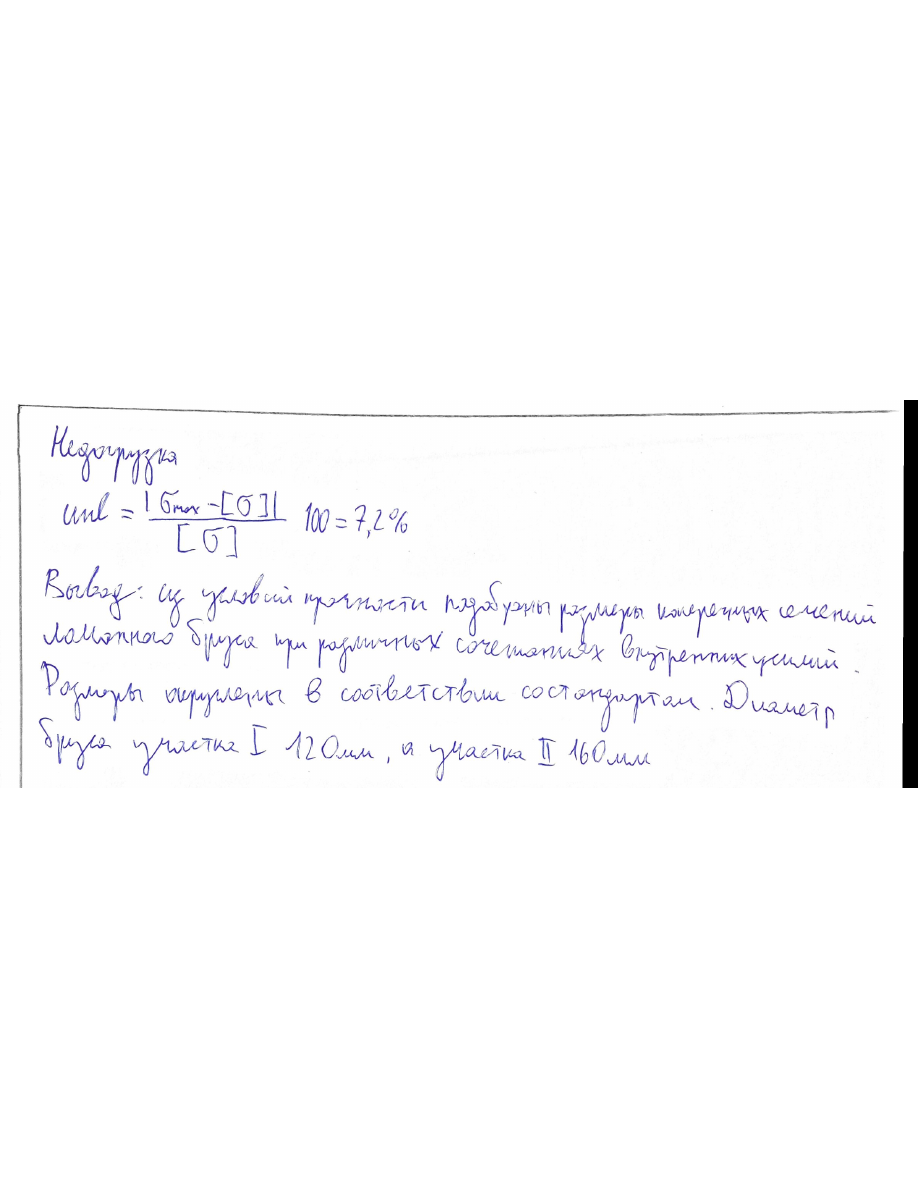 Недогрузка
unl = |σmax - [σ]| / [σ] 100 = 7,2%
Вывод: из условий прочности подобраны размеры поперечных сечений
ломанного бруса при различных сочетаниях внутренних усилий.
Размеры округлены в соответствии со стандартам. Диаметр
бруса участка I 120мм, а участка II 160мм